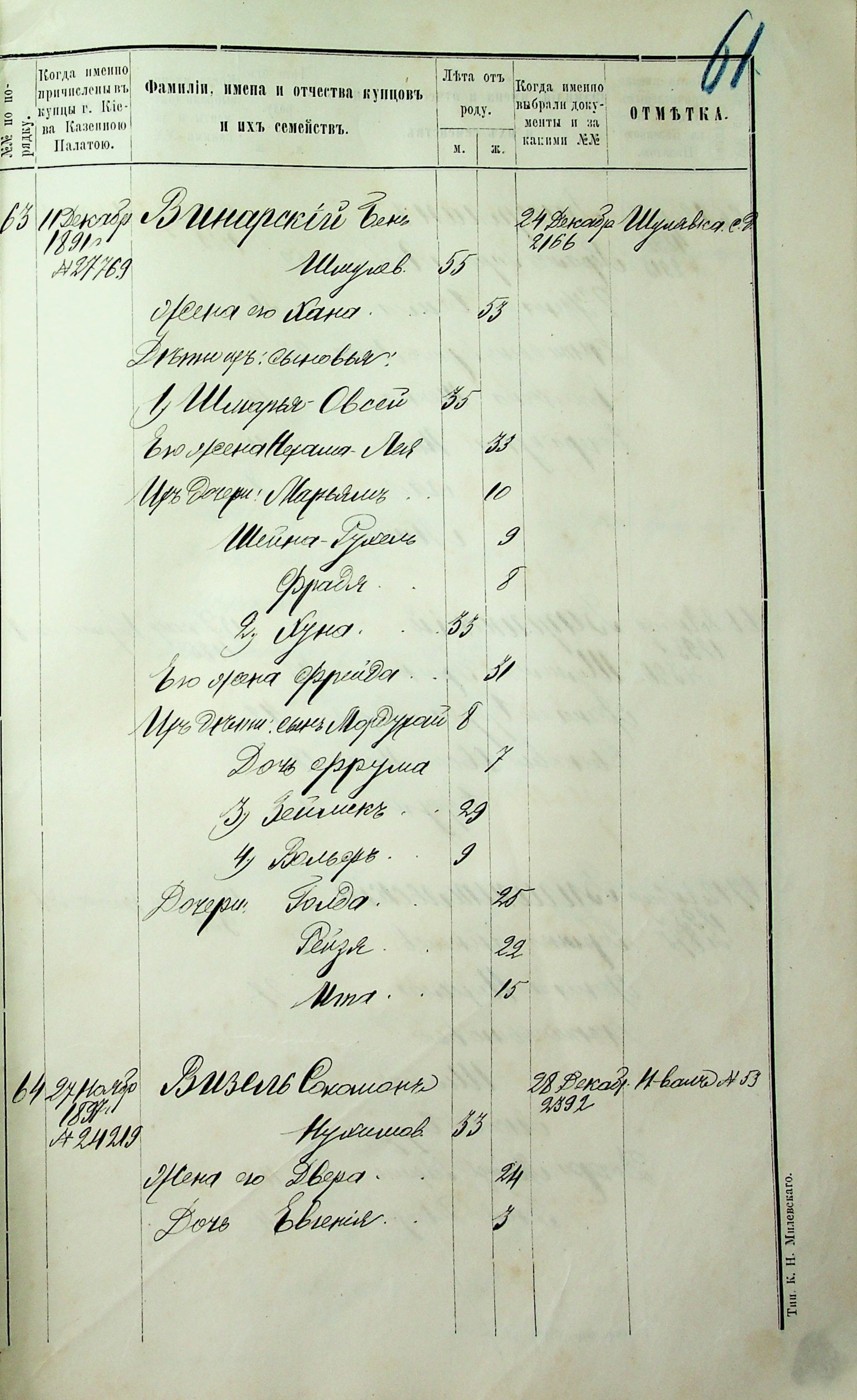 61.
№№ по по-
рядку.
Когда именно
причислены въ
купцы г. Кіе-
ва Казенною
Палатою.
Фамиліи, имена и отчества купцовъ
и ихъ семействъ.
Лѣта отъ
роду.
м. ж.
Когда именно
выбрали доку-
менты и за
какими №№
ОТМѢТКА.
63 11 Декабр Винарскій Бень 24 Декабр Шулявка с. д.
1891 г 2166
№ 27769 Шмулев. 55
Жена его Хана. 53
Дѣти ихъ: сыновья:
1) Шмарья-Овсей 35
Его жена Лея 33
Ихъ дочери: Марьямъ 10
Шейна-Рухель 9
Фрадя 8
2) Хуна. 33
Его жена Фрейда. 31
Ихъ дѣти: сынъ Мордухай 8
Дочь Фрума 7
3) Зейликъ 29
4) Вольфъ 9
Дочери: Голда. 25
Рейзя. 22
Ита. 15
64 27 Ноябр Визель Соломонъ 28 Декабр. № 53
1891 г. 2392
№ 24219 Нухимов. 33
Жена его Двера. 24
Дочь Евгенія. 3
Тип. К. Н. Милевскаго.